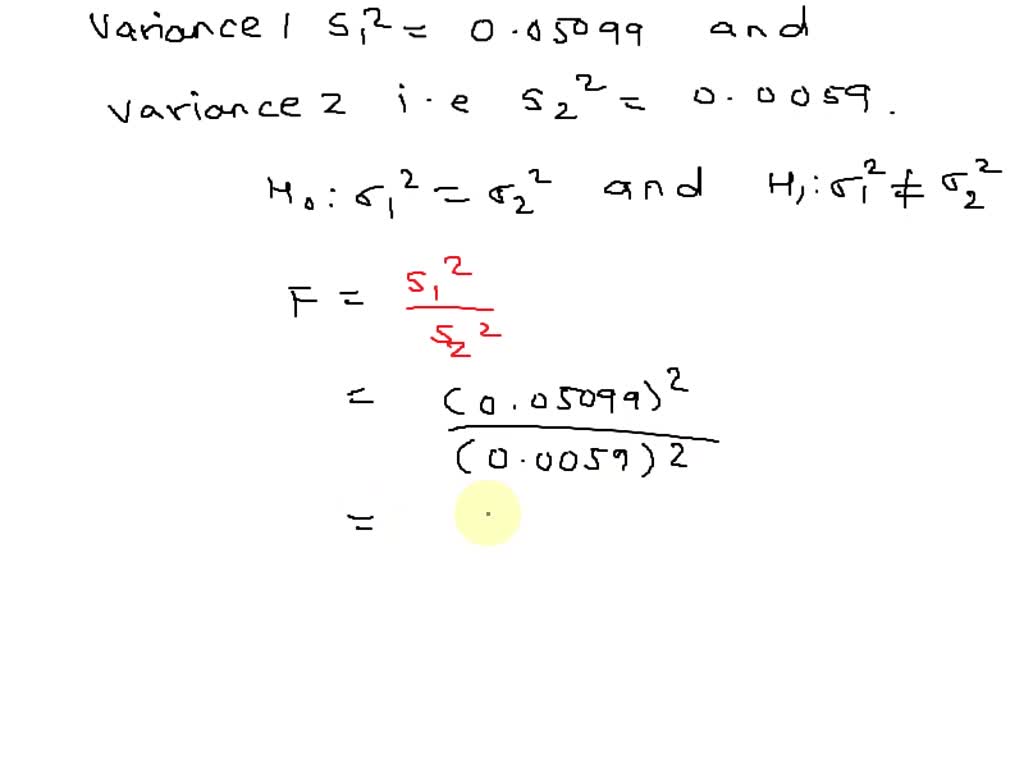 Variance 1 S₁² = 0.05099 and
Variance 2 i.e S₂² = 0.0059.
H₀ : σ₁² = σ₂² and H₁ : σ₁² ≠ σ₂²
F = S₁² / S₂²
= (0.05099)² / (0.0059)²
=